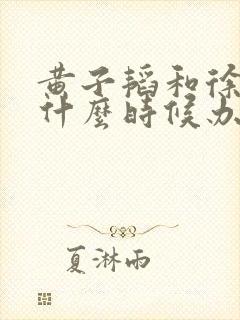 黄子韬和徐
什麼時候办
夏淋雨